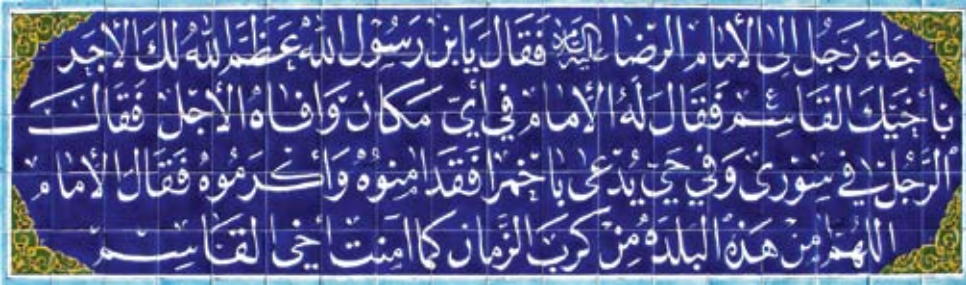 جَاءَ رَجُلٌ إِلى الأمام الرّضا عليه السلام فَقَالَ يَابن رَسُول الله عَظَّمَ اللهُ لَكَ الأجر
بأخيك القاسم فَقَالَ لَهُ الأمام في أيّ مكان وَافاهُ الأجَل فَقَالَ
الرَّجل في سورى وَفي حَيّ يُدعى باخمرا فَقَد امنوهُ وَأكرَموه فَقَالَ الأمام
اللهمَّ امن هَذه البلدة مِن كرب الزَّمان كما امنت أخي القاسم